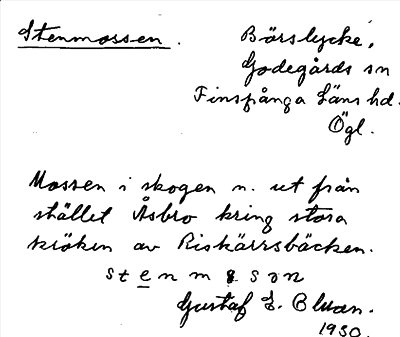 Stenmossen.
Bärslycke,
Godegårds sn
Finspånga Läns hd.
Ögl.
Mossen i skogen n. ut från
stället Åsbro kring stora
kröken av Riskärrsbäcken.
Gustaf E.
1930.